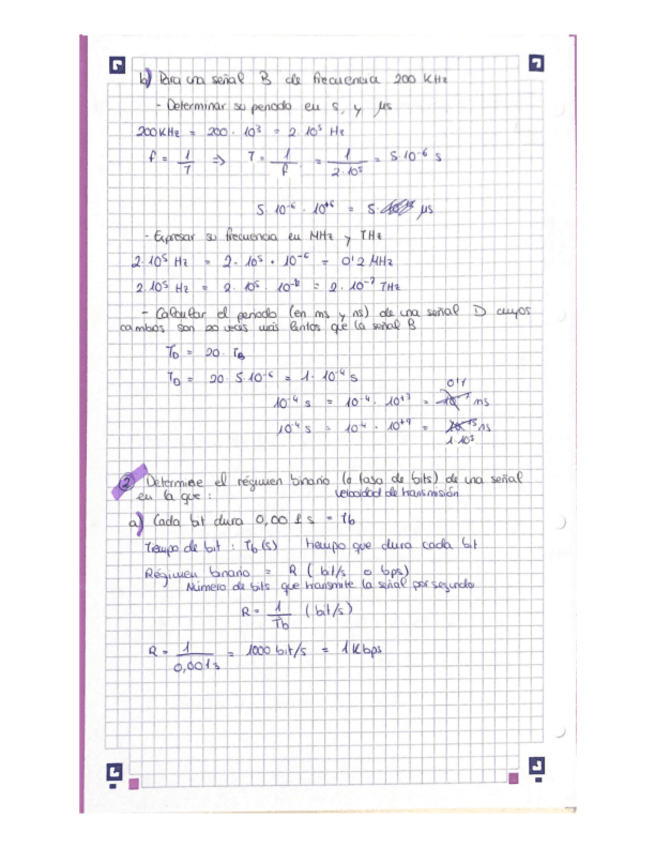 b) Para una señal B de frecuencia 200 KHz
- Determinar su periodo en s, y μs
200KHz = 200 · 10³ = 2 · 10⁵ Hz
f = 1/T ⇒ T = 1/f = 1/2·10⁵ = 5·10⁻⁶ s
5 · 10⁻⁶ · 10⁺⁶ = 5 μs
- Expresar su frecuencia en MHz y THz
2·10⁵ Hz = 2 · 10⁵ · 10⁻⁶ = 0'2 MHz
2·10⁵ Hz = 2 · 10⁵ · = 2 · 10⁻⁷ THz
- Calcular el periodo (en ms y ns) de una señal D cuyos
cambios son 20 veces más lentos que la señal B
T_D = 20 · T_B
T_D = 20 · 5·10⁻⁶ = 1 · 10⁻⁴ s
0'1
10⁻⁴ s = 10⁻⁴ · 10⁺³ = ms
10⁻⁴ s = 10⁻⁴ · 10⁺⁹ = ns
1·10⁵
② Determine el régimen binario (o tasa de bits) de una señal
en la que : velocidad de transmisión
a) Cada bit dura 0,001 s = Tb
Tiempo de bit : Tb (s) tiempo que dura cada bit
Régimen binario = R ( bit/s o bps)
Número de bits que transmite la señal por segundo
R = 1/Tb (bit/s)
R = 1/0,001s = 1000 bit/s = 1 Kbps